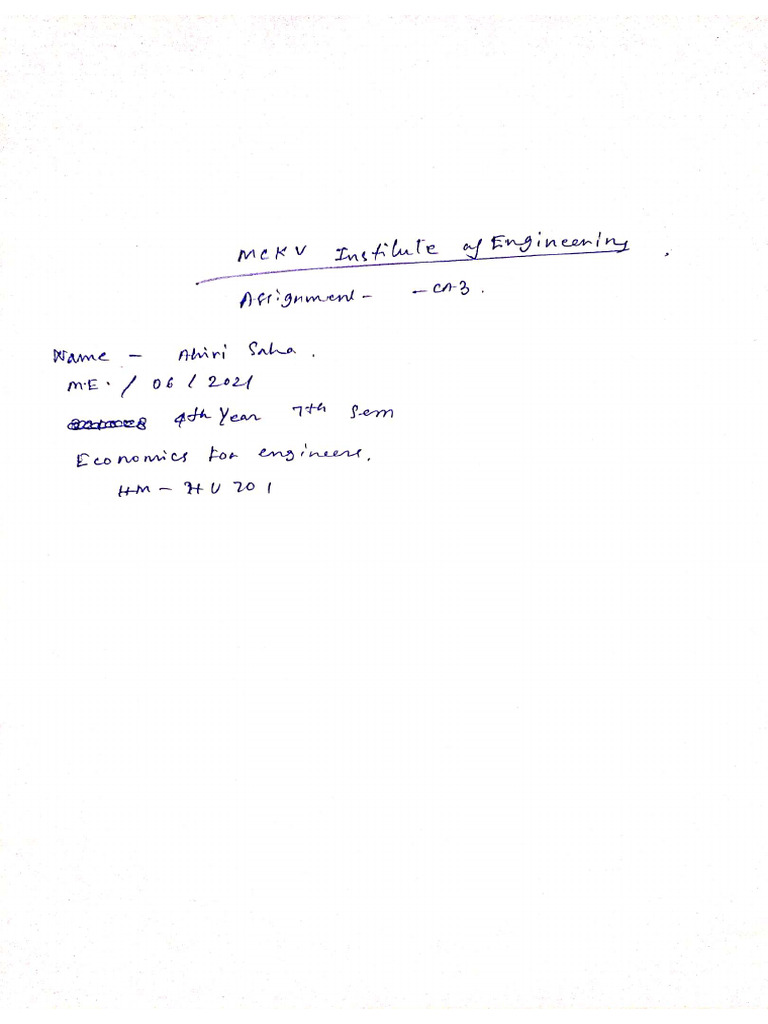 MCKV Institute of Engineering .
Assignment - - CA-3 .
Name - Ahiri Saha .
M.E. / 06 / 2021
4th Year 7th Sem
Economics for engineers.
HM - HU 201